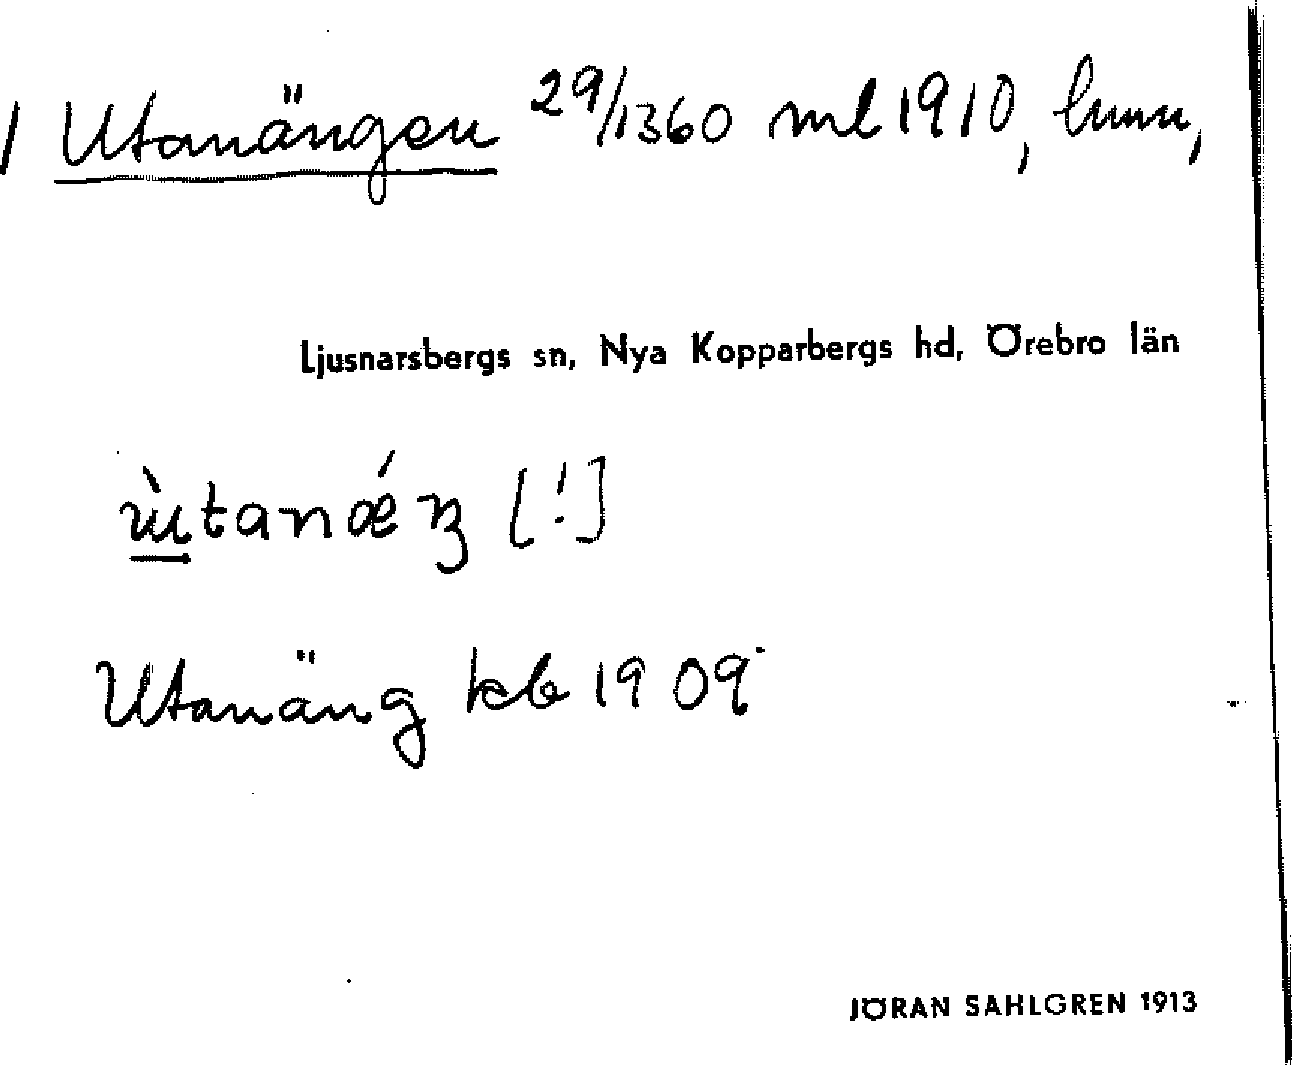 Utanängen 29/1360 ml 1910, hmn,
Ljusnarsbergs sn, Nya Kopparbergs hd, Örebro län
ùtanǽŋ [!]
Utanäng kb 1909
JÖRAN SAHLGREN 1913